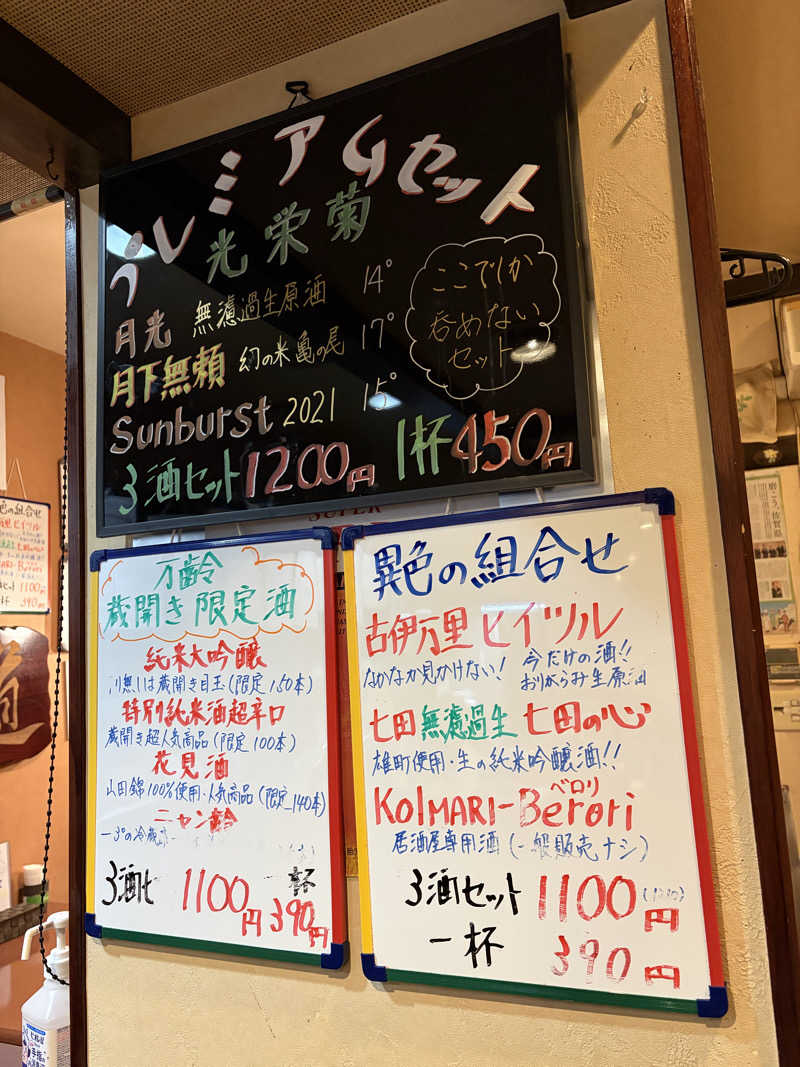 プレミアムセット
光栄菊
月光 無濾過生原酒 14°
月下無頼 幻の米亀の尾 17°
Sunburst 2021 15°
ここでしか
呑めない
セット
3酒セット1200円 1杯450円
万齢
蔵開き限定酒
純米大吟醸
蔵開き目玉(限定150本)
特別純米酒超辛口
蔵開き超人気商品(限定100本)
花見酒
山田錦100%使用・人気商品(限定140本)
ニャン齢
-3°の冷蔵
3酒セ 1100円 一杯 390円
異色の組合せ
古伊万里 ヒイツル
なかなか見かけない! 今だけの酒!!
おりがらみ生原酒
七田無濾過生 七田の心
雄町使用・生の純米吟醸酒!!
ベロリ
KoIMARI-Berori
居酒屋専用酒(一般販売ナシ)
3酒セット 1100円
一杯 390円
異色の組合せ